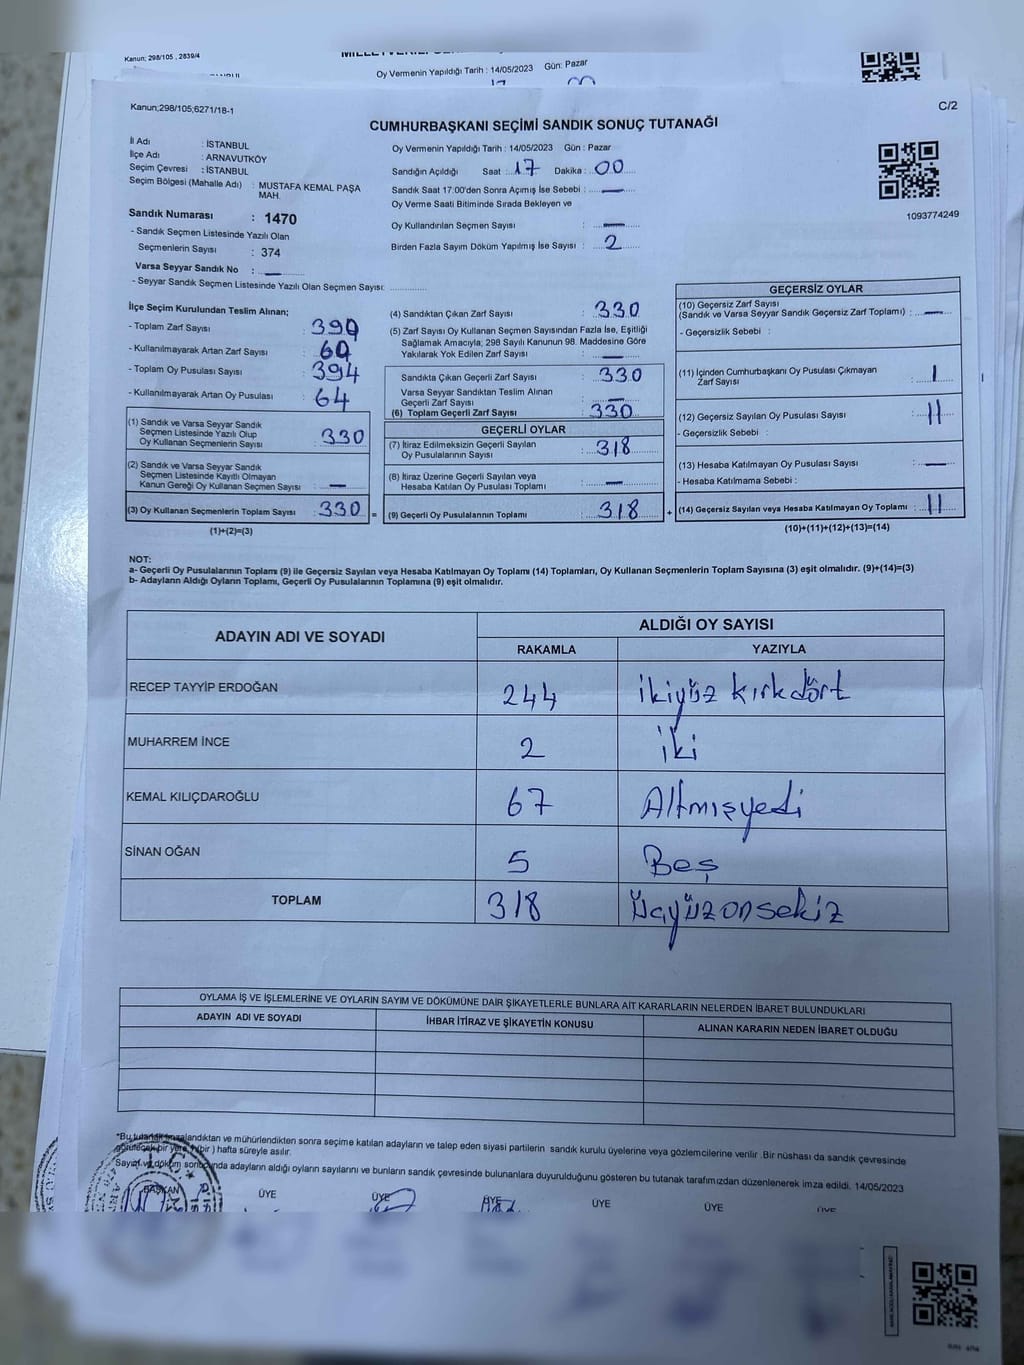 Kanun; 298/105 , 2839/4
Oy Vermenin Yapıldığı Tarih : 14/05/2023 Gün: Pazar
17 00
Kanun;298/105;6271/18-1
C/2
CUMHURBAŞKANI SEÇİMİ SANDIK SONUÇ TUTANAĞI
İl Adı : İSTANBUL
İlçe Adı : ARNAVUTKÖY
Seçim Çevresi : İSTANBUL
Seçim Bölgesi (Mahalle Adı) : MUSTAFA KEMAL PAŞA
MAH.
Sandık Numarası : 1470
- Sandık Seçmen Listesinde Yazılı Olan
Seçmenlerin Sayısı : 374
Varsa Seyyar Sandık No : —
- Seyyar Sandık Seçmen Listesinde Yazılı Olan Seçmen Sayısı: ..............
Oy Vermenin Yapıldığı Tarih : 14/05/2023 Gün : Pazar
Sandığın Açıldığı Saat : 17 Dakika : 00
Sandık Saat 17:00'den Sonra Açımış İse Sebebi : —
Oy Verme Saati Bitiminde Sırada Bekleyen ve
Oy Kullandırılan Seçmen Sayısı : —
Birden Fazla Sayım Döküm Yapılmış İse Sayısı : 2
1093774249
İlçe Seçim Kurulundan Teslim Alınan;
- Toplam Zarf Sayısı : 390
- Kullanılmayarak Artan Zarf Sayısı : 60
- Toplam Oy Pusulası Sayısı : 394
- Kullanılmayarak Artan Oy Pusulası : 64
(1) Sandık ve Varsa Seyyar Sandık
Seçmen Listesinde Yazılı Olup
Oy Kullanan Seçmenlerin Sayısı : 330
(2) Sandık ve Varsa Seyyar Sandık
Seçmen Listesinde Kayıtlı Olmayan
Kanun Gereği Oy Kullanan Seçmen Sayısı : —
(3) Oy Kullanan Seçmenlerin Toplam Sayısı : 330 =
(1)+(2)=(3)
(4) Sandıktan Çıkan Zarf Sayısı : 330
(5) Zarf Sayısı Oy Kullanan Seçmen Sayısından Fazla İse, Eşitliği
Sağlamak Amacıyla; 298 Sayılı Kanunun 98. Maddesine Göre
Yakılarak Yok Edilen Zarf Sayısı : —
Sandıkta Çıkan Geçerli Zarf Sayısı : 330
Varsa Seyyar Sandıktan Teslim Alınan
Geçerli Zarf Sayısı : —
(6) Toplam Geçerli Zarf Sayısı : 330
GEÇERLİ OYLAR
(7) İtiraz Edilmeksizin Geçerli Sayılan
Oy Pusulalarının Sayısı : 318
(8) İtiraz Üzerine Geçerli Sayılan veya
Hesaba Katılan Oy Pusulası Toplamı : —
(9) Geçerli Oy Pusulalarının Toplamı : 318 +
GEÇERSİZ OYLAR
(10) Geçersiz Zarf Sayısı
(Sandık ve Varsa Seyyar Sandık Geçersiz Zarf Toplamı) : —
- Geçersizlik Sebebi :
(11) İçinden Cumhurbaşkanı Oy Pusulası Çıkmayan
Zarf Sayısı : 1
(12) Geçersiz Sayılan Oy Pusulası Sayısı : 11
- Geçersizlik Sebebi :
(13) Hesaba Katılmayan Oy Pusulası Sayısı : —
- Hesaba Katılmama Sebebi :
(14) Geçersiz Sayılan veya Hesaba Katılmayan Oy Toplamı : 11
(10)+(11)+(12)+(13)=(14)
NOT:
a- Geçerli Oy Pusulalarının Toplamı (9) ile Geçersiz Sayılan veya Hesaba Katılmayan Oy Toplamı (14) Toplamları, Oy Kullanan Seçmenlerin Toplam Sayısına (3) eşit olmalıdır. (9)+(14)=(3)
b- Adayların Aldığı Oyların Toplamı, Geçerli Oy Pusulalarının Toplamına (9) eşit olmalıdır.
ADAYIN ADI VE SOYADI ALDIĞI OY SAYISI
RAKAMLA YAZIYLA
RECEP TAYYİP ERDOĞAN 244 ikiyüz kırkdört
MUHARREM İNCE 2 iki
KEMAL KILIÇDAROĞLU 67 Altmışyedi
SİNAN OĞAN 5 Beş
TOPLAM 318 Üçyüzonsekiz
OYLAMA İŞ VE İŞLEMLERİNE VE OYLARIN SAYIM VE DÖKÜMÜNE DAİR ŞİKAYETLERLE BUNLARA AİT KARARLARIN NELERDEN İBARET BULUNDUKLARI
ADAYIN ADI VE SOYADI İHBAR İTİRAZ VE ŞİKAYETİN KONUSU ALINAN KARARIN NEDEN İBARET OLDUĞU
*Bu tutanak imzalandıktan ve mühürlendikten sonra seçime katılan adayların ve talep eden siyasi partilerin sandık kurulu üyelerine veya gözlemcilerine verilir .Bir nüshası da sandık çevresinde
görülecek bir yere 1 (bir ) hafta süreyle asılır.
Sayım ve döküm sonucunda adayların aldığı oyların sayılarını ve bunların sandık çevresinde bulunanlara duyurulduğunu gösteren bu tutanak tarafımızdan düzenlenerek imza edildi. 14/05/2023
BAŞKAN ÜYE ÜYE ÜYE ÜYE ÜYE ÜYE